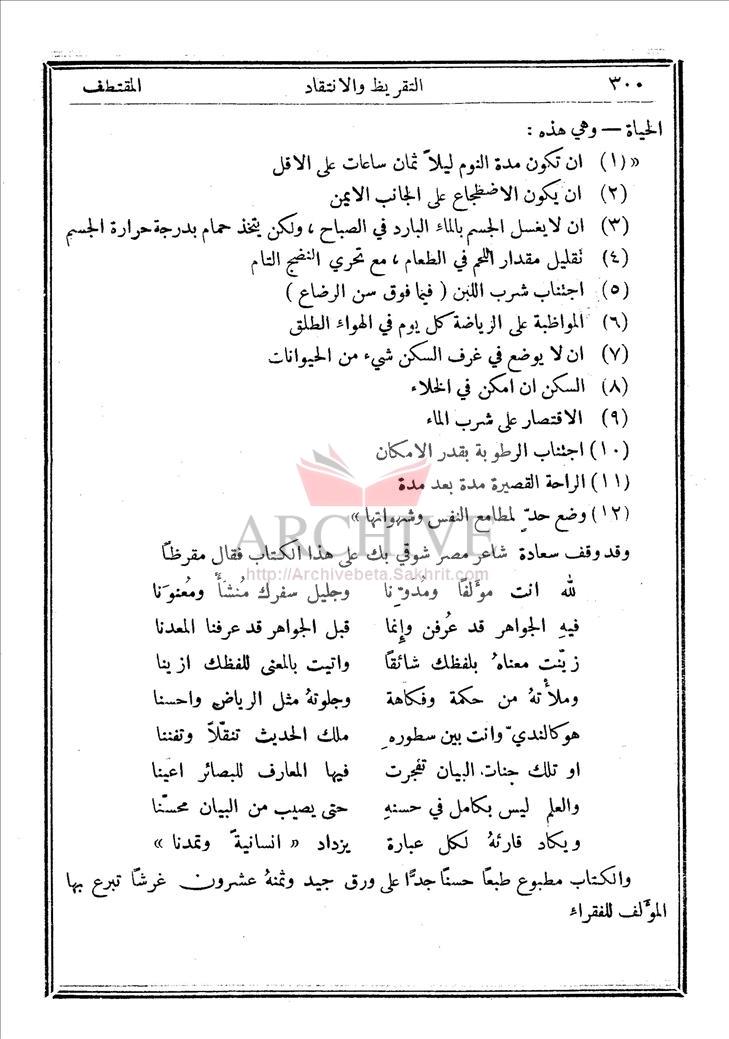 ٣٠٠ التقريظ والانتقاد المقتطف
الحياة — وهي هذه :
« (١) ان تكون مدة النوم ليلاً ثمان ساعات على الاقل
(٢) ان يكون الاضطجاع على الجانب الايمن
(٣) ان لا يغسل الجسم بالماء البارد في الصباح ، ولكن يتخذ حمام بدرجة حرارة الجسم
(٤) تقليل مقدار اللحم في الطعام ، مع تحري النضج التام
(٥) اجتناب شرب اللبن ( فيما فوق سن الرضاع )
(٦) المواظبة على الرياضة كل يوم في الهواء الطلق
(٧) ان لا يوضع في غرف السكن شيء من الحيوانات
(٨) السكن ان امكن في الخلاء
(٩) الاقتصار على شرب الماء
(١٠) اجتناب الرطوبة بقدر الامكان
(١١) الراحة القصيرة مدة بعد مدة
(١٢) وضع حدٍّ لمطامع النفس وشهواتها »
ARCHIVE
وقد وقف سعادة شاعر مصر شوقي بك على هذا الكتاب فقال مقرظاً
http://Archivebeta.Sakhrit.com
لله انت مؤلفاً ومُدوِّنا وجليل سفرك مُنشأً ومُعنوَنا
فيهِ الجواهر قد عُرفن وإنما قبل الجواهر قد عرفنا المعدنا
زيّنت معناهُ بلفظك شائقاً واتيت بالمعنى للفظك ازينا
وملأتهُ من حكمة وفكاهة وجلوتهُ مثل الرياض واحسنا
هو كالنديّ وانت بين سطورهِ ملك الحديث تنقّلاً وتفننا
او تلك جنات البيان تفجرت فيها المعارف للبصائر اعينا
والعلم ليس بكامل في حسنهِ حتى يصيب من البيان محسّنا
ويكاد قارئهُ لكل عبارة يزداد « انسانيةً وتمدنا »
والكتاب مطبوع طبعاً حسناً جدًّا على ورق جيد وثمنهُ عشرون غرشاً تبرع بها
المؤلف للفقراء